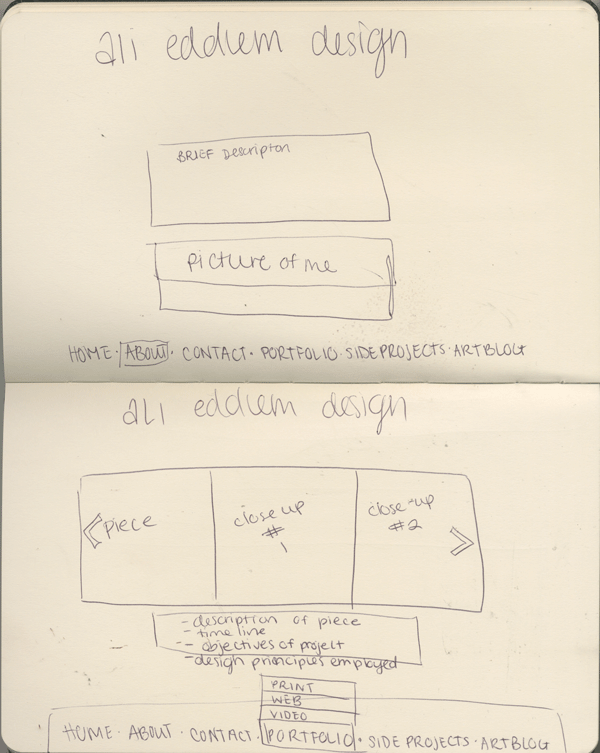 ali eddlem design
BRIEF Description
picture of me
HOME · ABOUT · CONTACT · PORTFOLIO · SIDE PROJECTS · ART BLOG
ali eddlem design
piece
close up
#
1
close-up
#2
- description of piece
- time line
- objectives of project
- design principles employed
PRINT
WEB
VIDEO
HOME · ABOUT · CONTACT · PORTFOLIO · SIDE PROJECTS · ART BLOG